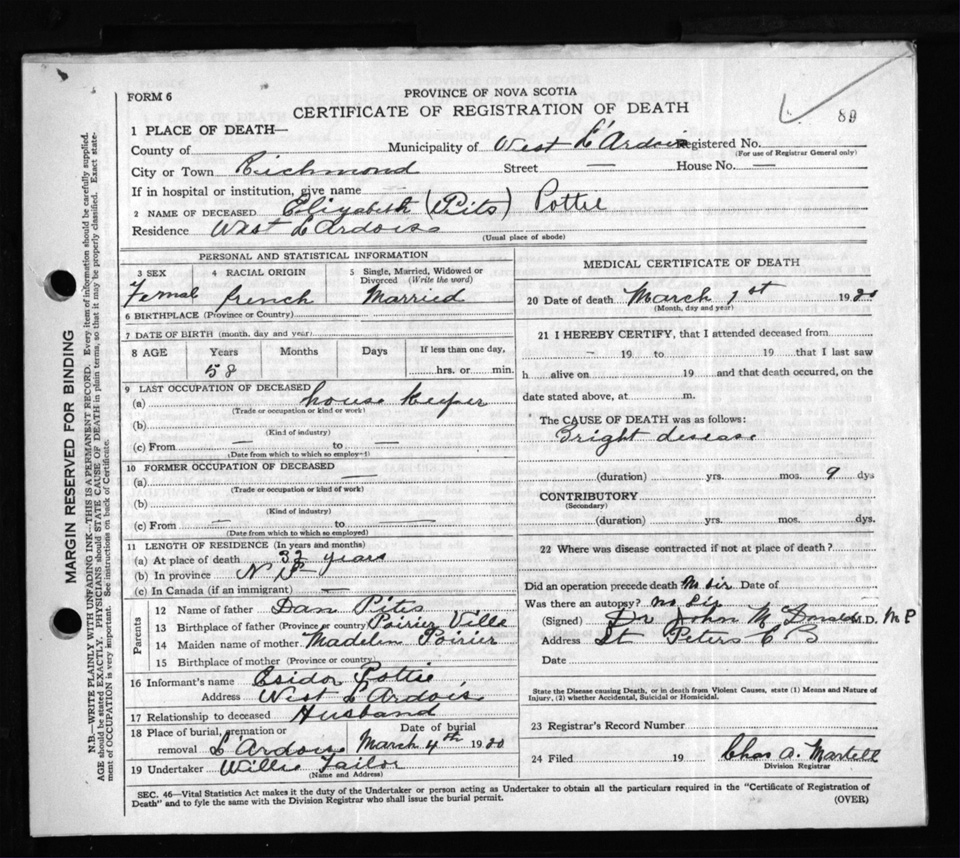 FORM 6
PROVINCE OF NOVA SCOTIA
CERTIFICATE OF REGISTRATION OF DEATH
89
1 PLACE OF DEATH—
County of Municipality of West L'Ardois Registered No.
(For use of Registrar General only)
City or Town Richmond Street — House No. —
If in hospital or institution, give name
2 NAME OF DECEASED Elizabeth (Pits) Pottie
Residence West L'Ardoiss
(Usual place of abode)
PERSONAL AND STATISTICAL INFORMATION
3 SEX 4 RACIAL ORIGIN 5 Single, Married, Widowed or Divorced (Write the word)
Femal french Married
6 BIRTHPLACE (Province or Country)
7 DATE OF BIRTH (month, day and year)
8 AGE Years Months Days If less than one day,
58 hrs. or min.
9 LAST OCCUPATION OF DECEASED
(a) house keeper
(Trade or occupation or kind or work)
(b)
(Kind of industry)
(c) From — to —
(Date from which to which so employ-)
10 FORMER OCCUPATION OF DECEASED
(a) —
(Trade or occupation or kind of work)
(b)
(Kind of industry)
(c) From — to —
(Date from which to which so employed)
11 LENGTH OF RESIDENCE (In years and months)
(a) At place of death 32 years
(b) In province N S
(c) In Canada (if an immigrant) —
Parents
12 Name of father Dan Pitis
13 Birthplace of father (Province or country) Poirier Ville
14 Maiden name of mother Madelin Poirier
15 Birthplace of mother (Province or country)
16 Informant's name Esidor Pottie
Address West L'Ardois
17 Relationship to deceased Husband
18 Place of burial, cremation or removal L'Ardoiss
Date of burial March 4th 1920
19 Undertaker Willie Tailor
(Name and Address)
MEDICAL CERTIFICATE OF DEATH
20 Date of death March 1st 1920
(Month, day and year)
21 I HEREBY CERTIFY, that I attended deceased from
— 19 to 19 that I last saw
h alive on 19 and that death occurred, on the
date stated above, at m.
The CAUSE OF DEATH was as follows:
Bright desease
(duration) yrs. mos. 9 dys
CONTRIBUTORY
(Secondary)
(duration) yrs. mos. dys.
22 Where was disease contracted if not at place of death?
Did an operation precede death no sir Date of
Was there an autopsy? no Sir
(Signed) Dr John McDonald M.D.
Address St Peters C B
Date
State the Disease causing Death, or in death from Violent Causes, state (1) Means and Nature of
Injury, (2) whether Accidental, Suicidal or Homicidal.
23 Registrar's Record Number
24 Filed 19 Chas A. Martell
Division Registrar
SEC. 46—Vital Statistics Act makes it the duty of the Undertaker or person acting as Undertaker to obtain all the particulars required in the "Certificate of Registration of
Death" and to fyle the same with the Division Registrar who shall issue the burial permit.
(OVER)
MARGIN RESERVED FOR BINDING
N.B.—WRITE PLAINLY WITH UNFADING INK—THIS IS A PERMANENT RECORD. Every item of information should be carefully supplied.
AGE should be stated EXACTLY. PHYSICIANS should STATE CAUSE OF DEATH in plain terms, so that it may be properly classified. Exact state-
ment of OCCUPATION is very important. See instructions on back of Certificate.